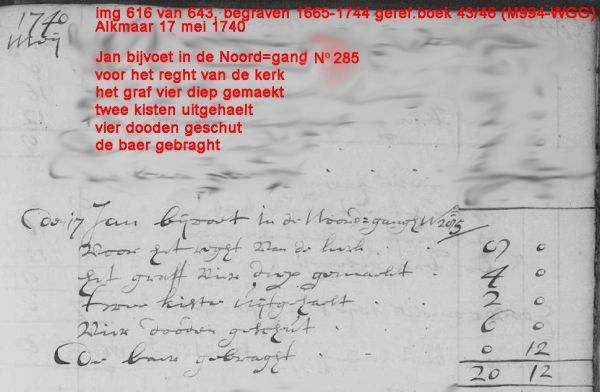 img 616 van 643, begraven 1665-1744 geref.boek 43/46 (M994-WGG)
Alkmaar 17 mei 1740
1740
Meij
Jan bijvoet in de Noord=gang Nº 285
voor het reght van de kerk
het graf vier diep gemaekt
twee kisten uitgehaelt
vier dooden geschut
de baer gebraght
17 Jan bijvoet in de Noord=gangh Nº 285
Voor het reght van de kerk 8 0
het graff vier diep gemaekt 4 0
twee kiste uijtgehaelt 2 0
vier dooden geschut 6 0
De baer gebraght 0 12
20 12